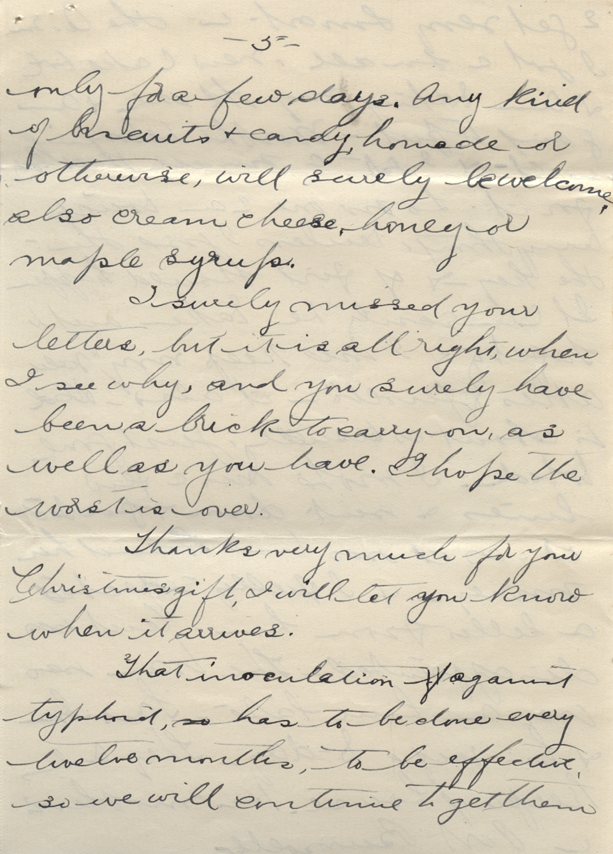 -5-
only for a few days. Any kind
of biscuits + candy, homade or
otherwise, will surely be welcome,
also cream cheese, honey or
maple syrup.
I surely missed your
letters, but it is all right, when
I see why, and you surely have
been a brick to carry on, as
well as you have. I hope the
worst is over.
Thanks very much for your
Christmas gift, I will let you know
when it arrives.
That inoculation against
typhoid, so has to be done every
twelve months, to be effective,
so we will continue to get them